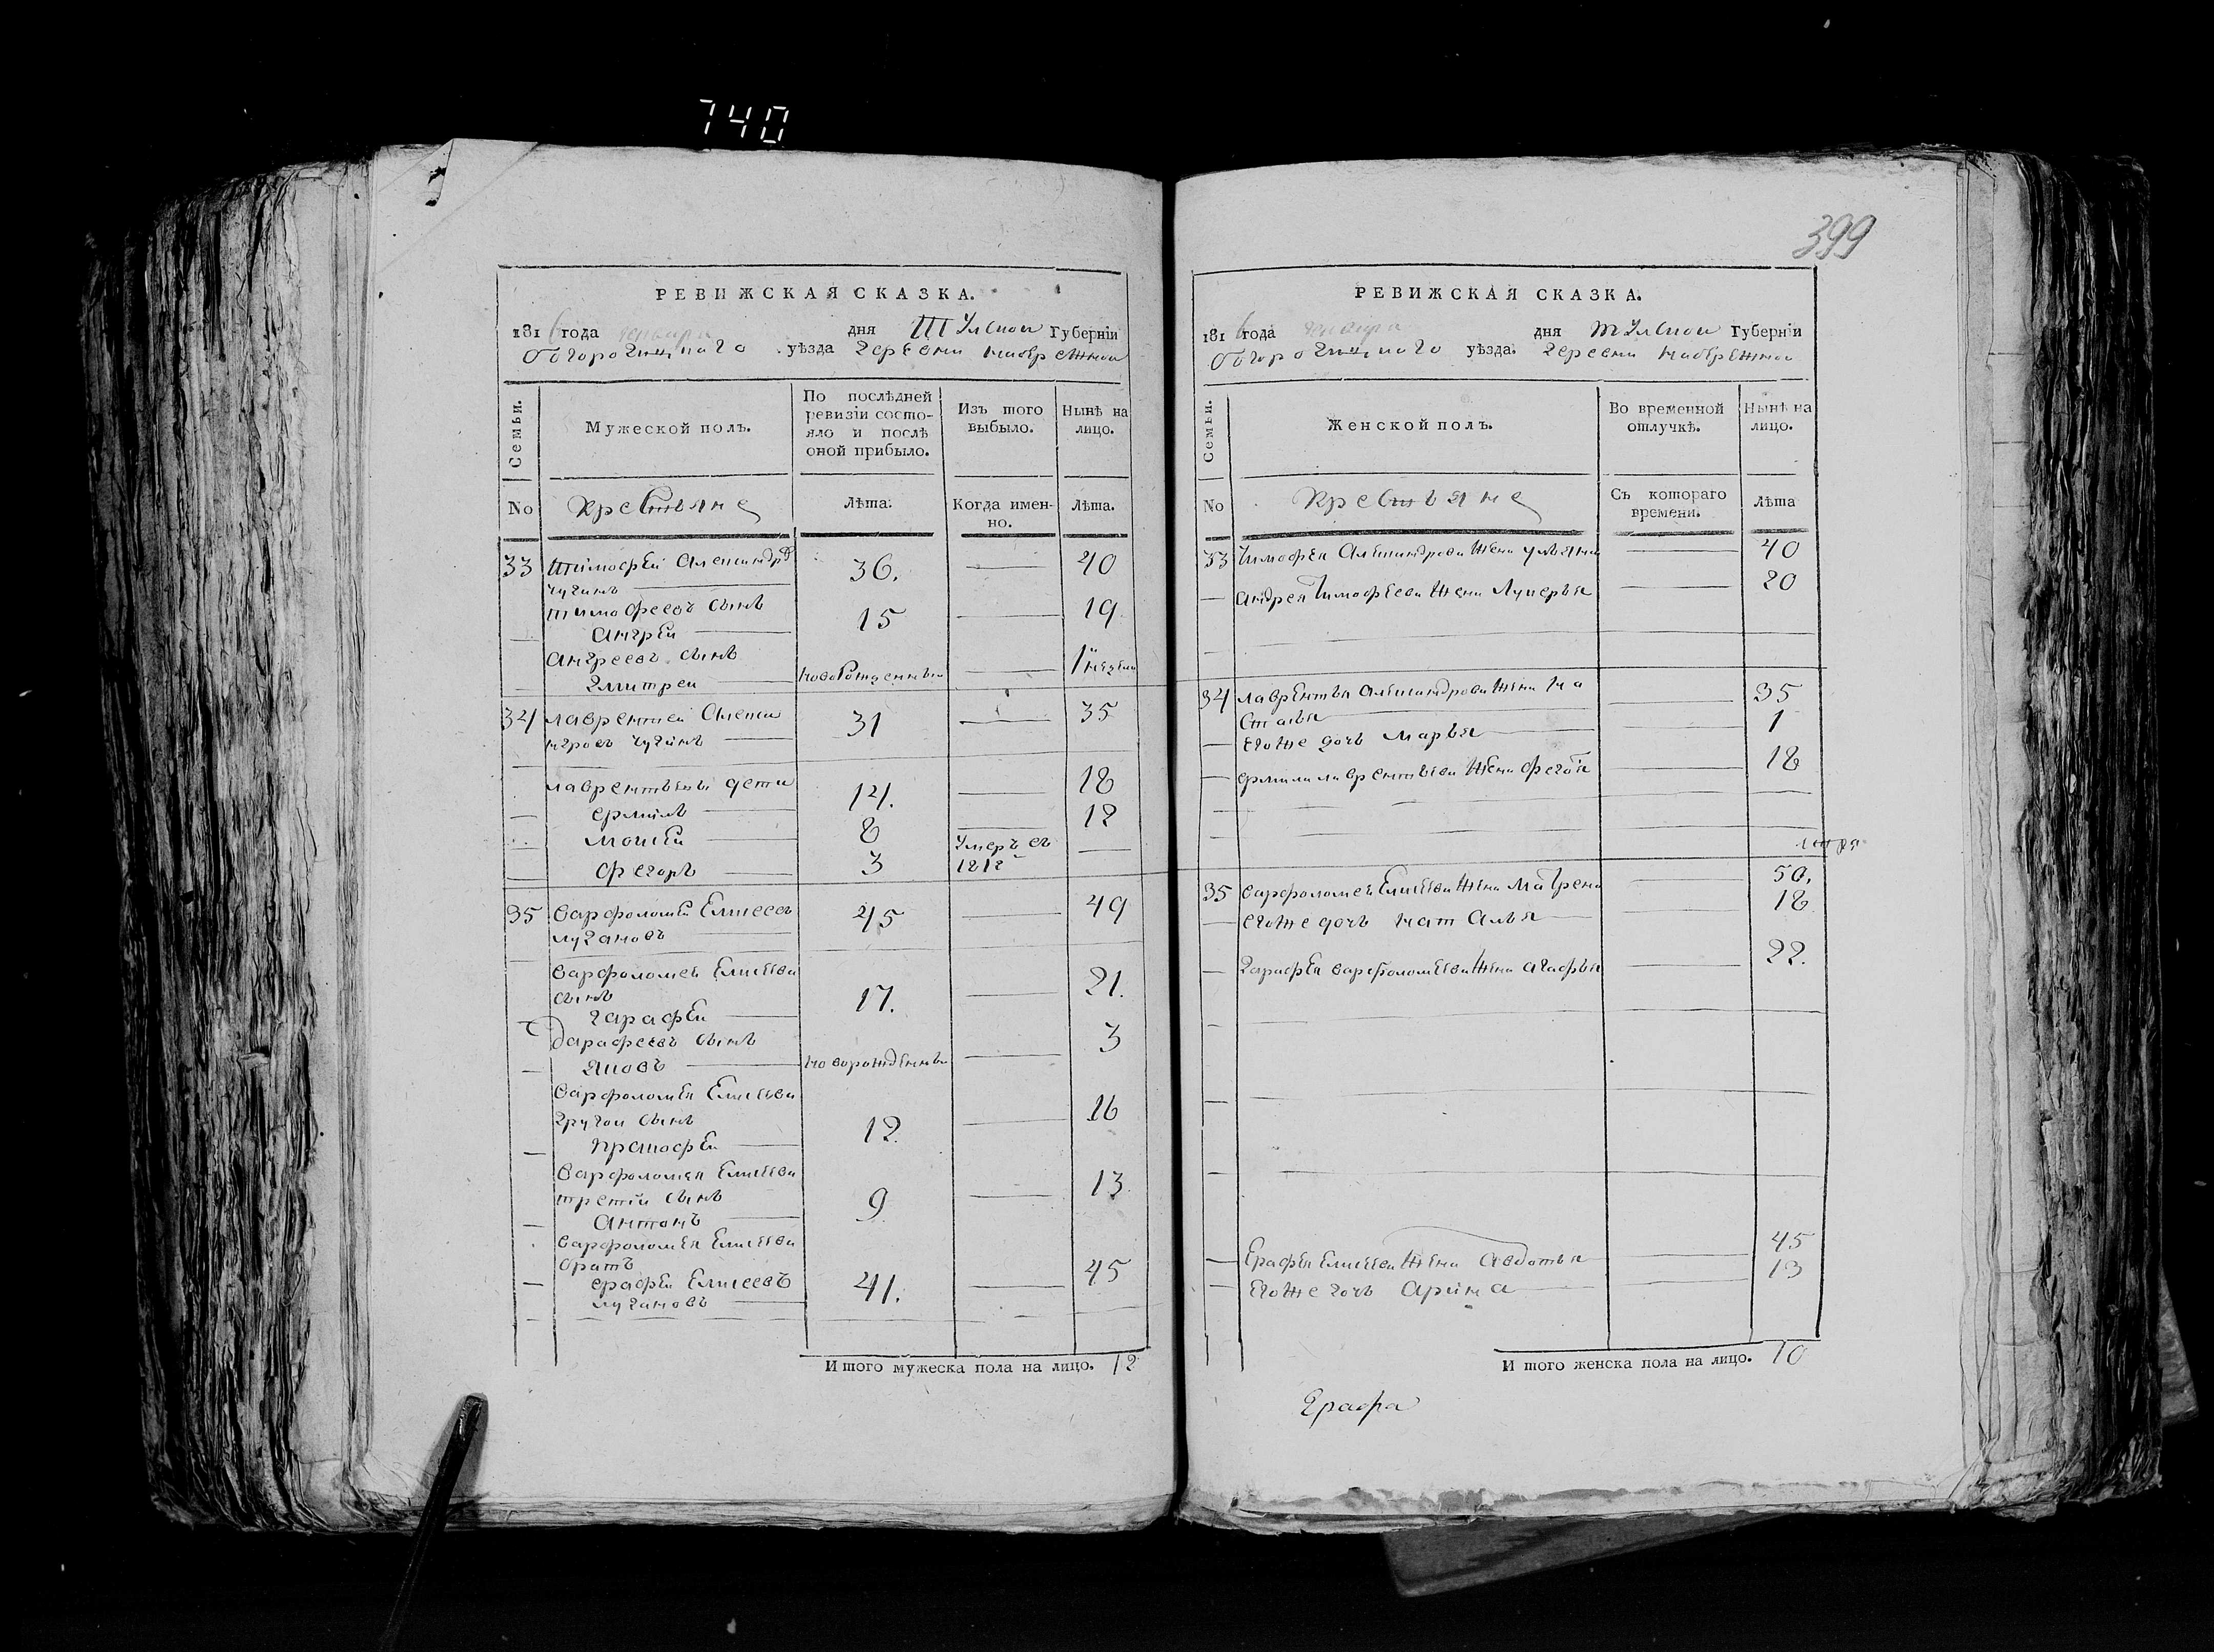 740
399
РЕВИЖСКАЯ СКАЗКА.
1816 года генваря дня Тулской Губерніи
богородицкаго уѣзда деревни набережной
Семьи.
Мужеской полъ.
По послѣдней
ревизіи состо-
яло и послѣ
оной прибыло.
Изъ того
выбыло.
Нынѣ на
лицо.
No
крестьяне
Лѣта.
Когда имен-
но.
Лѣта.
33 тимофей Александръ 36. 40
тимофеевъ сынъ
Андрей 15 19
Андреевъ сынъ
дмитрей новорожденный 1 недели
34 лаврентей Алекса 31 35
ндровъ
лаврентьевы дети
ермилъ 14. 18
моисей 8 12
федоръ 3 умеръ въ
1812
35 варфоломей Елисеевъ 45 49
лугановъ
варфоломея Елисеева
сынъ
дарафей 17. 21.
дарафеевъ сынъ
яковъ новорожденный 3
варфоломея Елисеева
другой сынъ
прокофей 12. 16
варфоломея Елисеева
третій сынъ
антонъ 9 13
варфоломея Елисеева
братъ
ерафей Елисеевъ 41. 45
лугановъ
И того мужеска пола на лицо. 12
РЕВИЖСКАЯ СКАЗКА.
1816 года генваря дня тулской Губерніи
богородицкаго уѣзда. деревни набрежной
Семьи.
Женской полъ.
Во временной
отлучкѣ.
Нынѣ на
лицо.
No
крестьяне
Съ котораго
времени.
Лѣта
33 тимофея Александрова жена ульяна 40
андрея тимофеева жена Лукерья 20
34 лаврентья александрова жена на 35
стасья
егоже дочь марья 1
ермила лаврентьева жена федосья 18
35 варфоломея Елисеева жена матрена 50.
егоже дочь наталья 18
дарафея варфоломеева жена агафья 22.
Ерафея Елисеева жена авдотья 45
егоже дочь арина 13
И того женска пола на лицо. 10
Ерафа